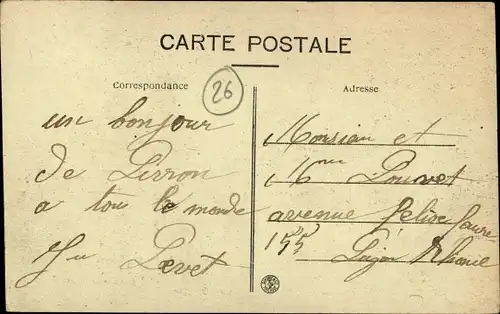 CARTE POSTALE
Correspondance
26
Adresse
un bonjour
de Pirron
a tous le monde
Pevet
Monsieur et
Mme Pouvet
avenue felixe faure
155 Rhone